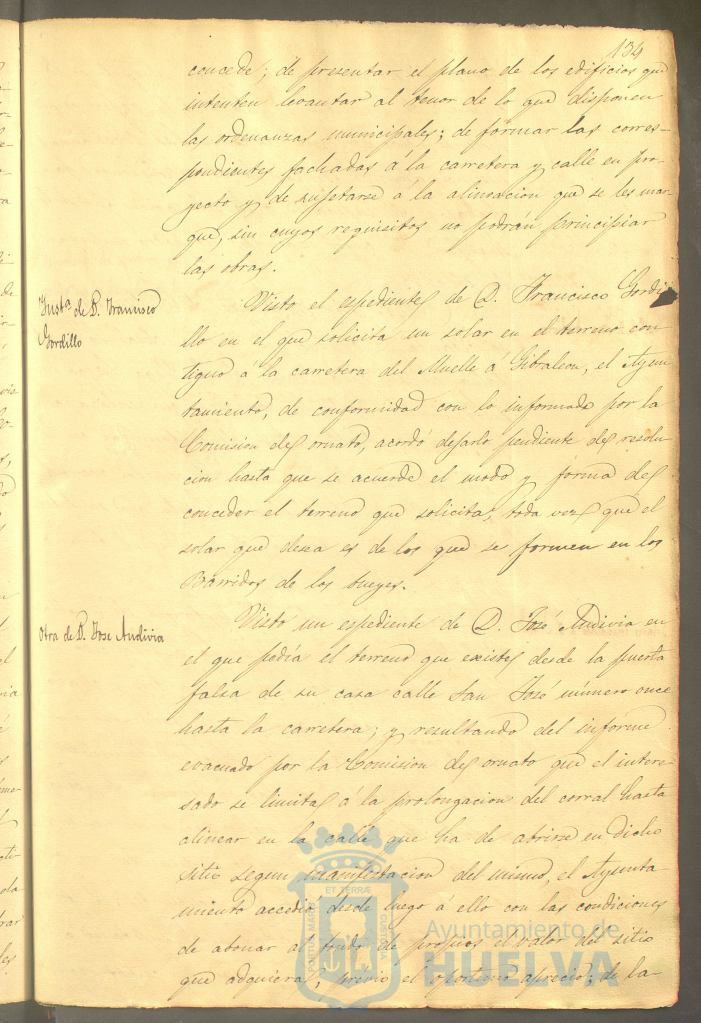 134
concede; de presentar el plano de los edificios que
intenten levantar al tenor de lo que disponen
las ordenanzas municipales; de formar las corres-
pondientes fachadas á la carretera y calle en pro-
yecto y de sujetarse á la alineacion que se les mar-
que, sin cuyos requisitos no podrán principiar
las obras.
Insta. de D. Francisco
Gordillo
Visto el espediente de D. Francisco Gordi-
llo en el que solicita un solar en el terreno con-
tiguo á la carretera del Muelle á Gibraleon, el Ayun-
tamiento, de conformidad con lo informado por la
Comision de ornato, acordó dejarlo pendiente de resolu-
cion hasta que se acuerde el modo y forma de
conceder el terreno que solicita, toda vez que el
solar que desea es de los que se formen en los
Barridos de los bueyes.
Otra de D. Jose Andivia
Visto un espediente de D. José Andivia en
el que pedía el terreno que existe desde la puerta
falsa de su casa calle San José número once
hasta la carretera; y resultando del informe
evacuado por la Comision de ornato que el intere-
sado se limita á la prolongacion del corral hasta
alinear en la calle que ha de abrirse en dicho
sitio segun manifestacion del mismo, el Ayunta-
miento accedió desde luego á ello con las condiciones
de abonar al fondo de propios el valor del sitio
que adquiera, previo el oportuno aprecio; de la-
PORTUS MARIS ET TERRÆ CUSTODIA
Ayuntamiento de
HUELVA